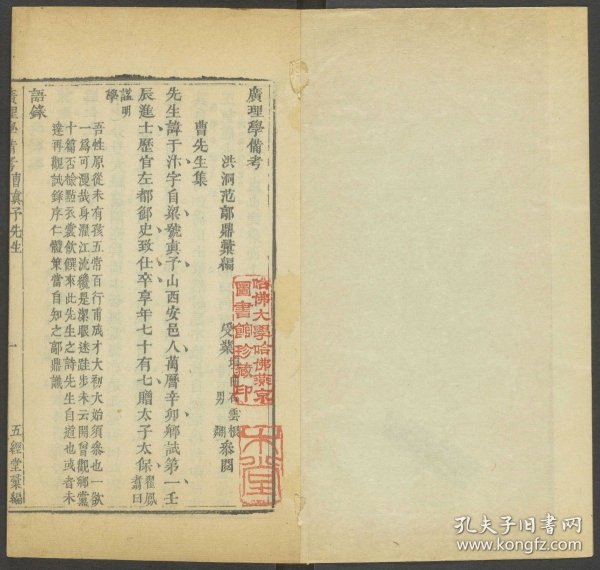 廣理學備考
洪洞范鄗鼎彙編
曹先生集
先生諱于汴字自梁號眞予山西安邑人萬曆辛卯鄕試第一壬
辰進士歷官左都御史致仕卒享年七十有七贈太子太保
諡明
學
吾性原從未有孩五常百行甫成才大初大始須參也一欲
一爲可漫哉身濯江流纔是潔眼迷跬步未云開曾觀鄕黨
十篇否檢點衣裳飲饌來此先生之詩先生自道也或者未
達再觀試錄序仁體策當自知之鄗鼎識
語錄
先生
一
五經堂彙編
哈佛大學哈佛燕京
圖書館珍藏印
孔夫子旧书网
www.kongfz.com